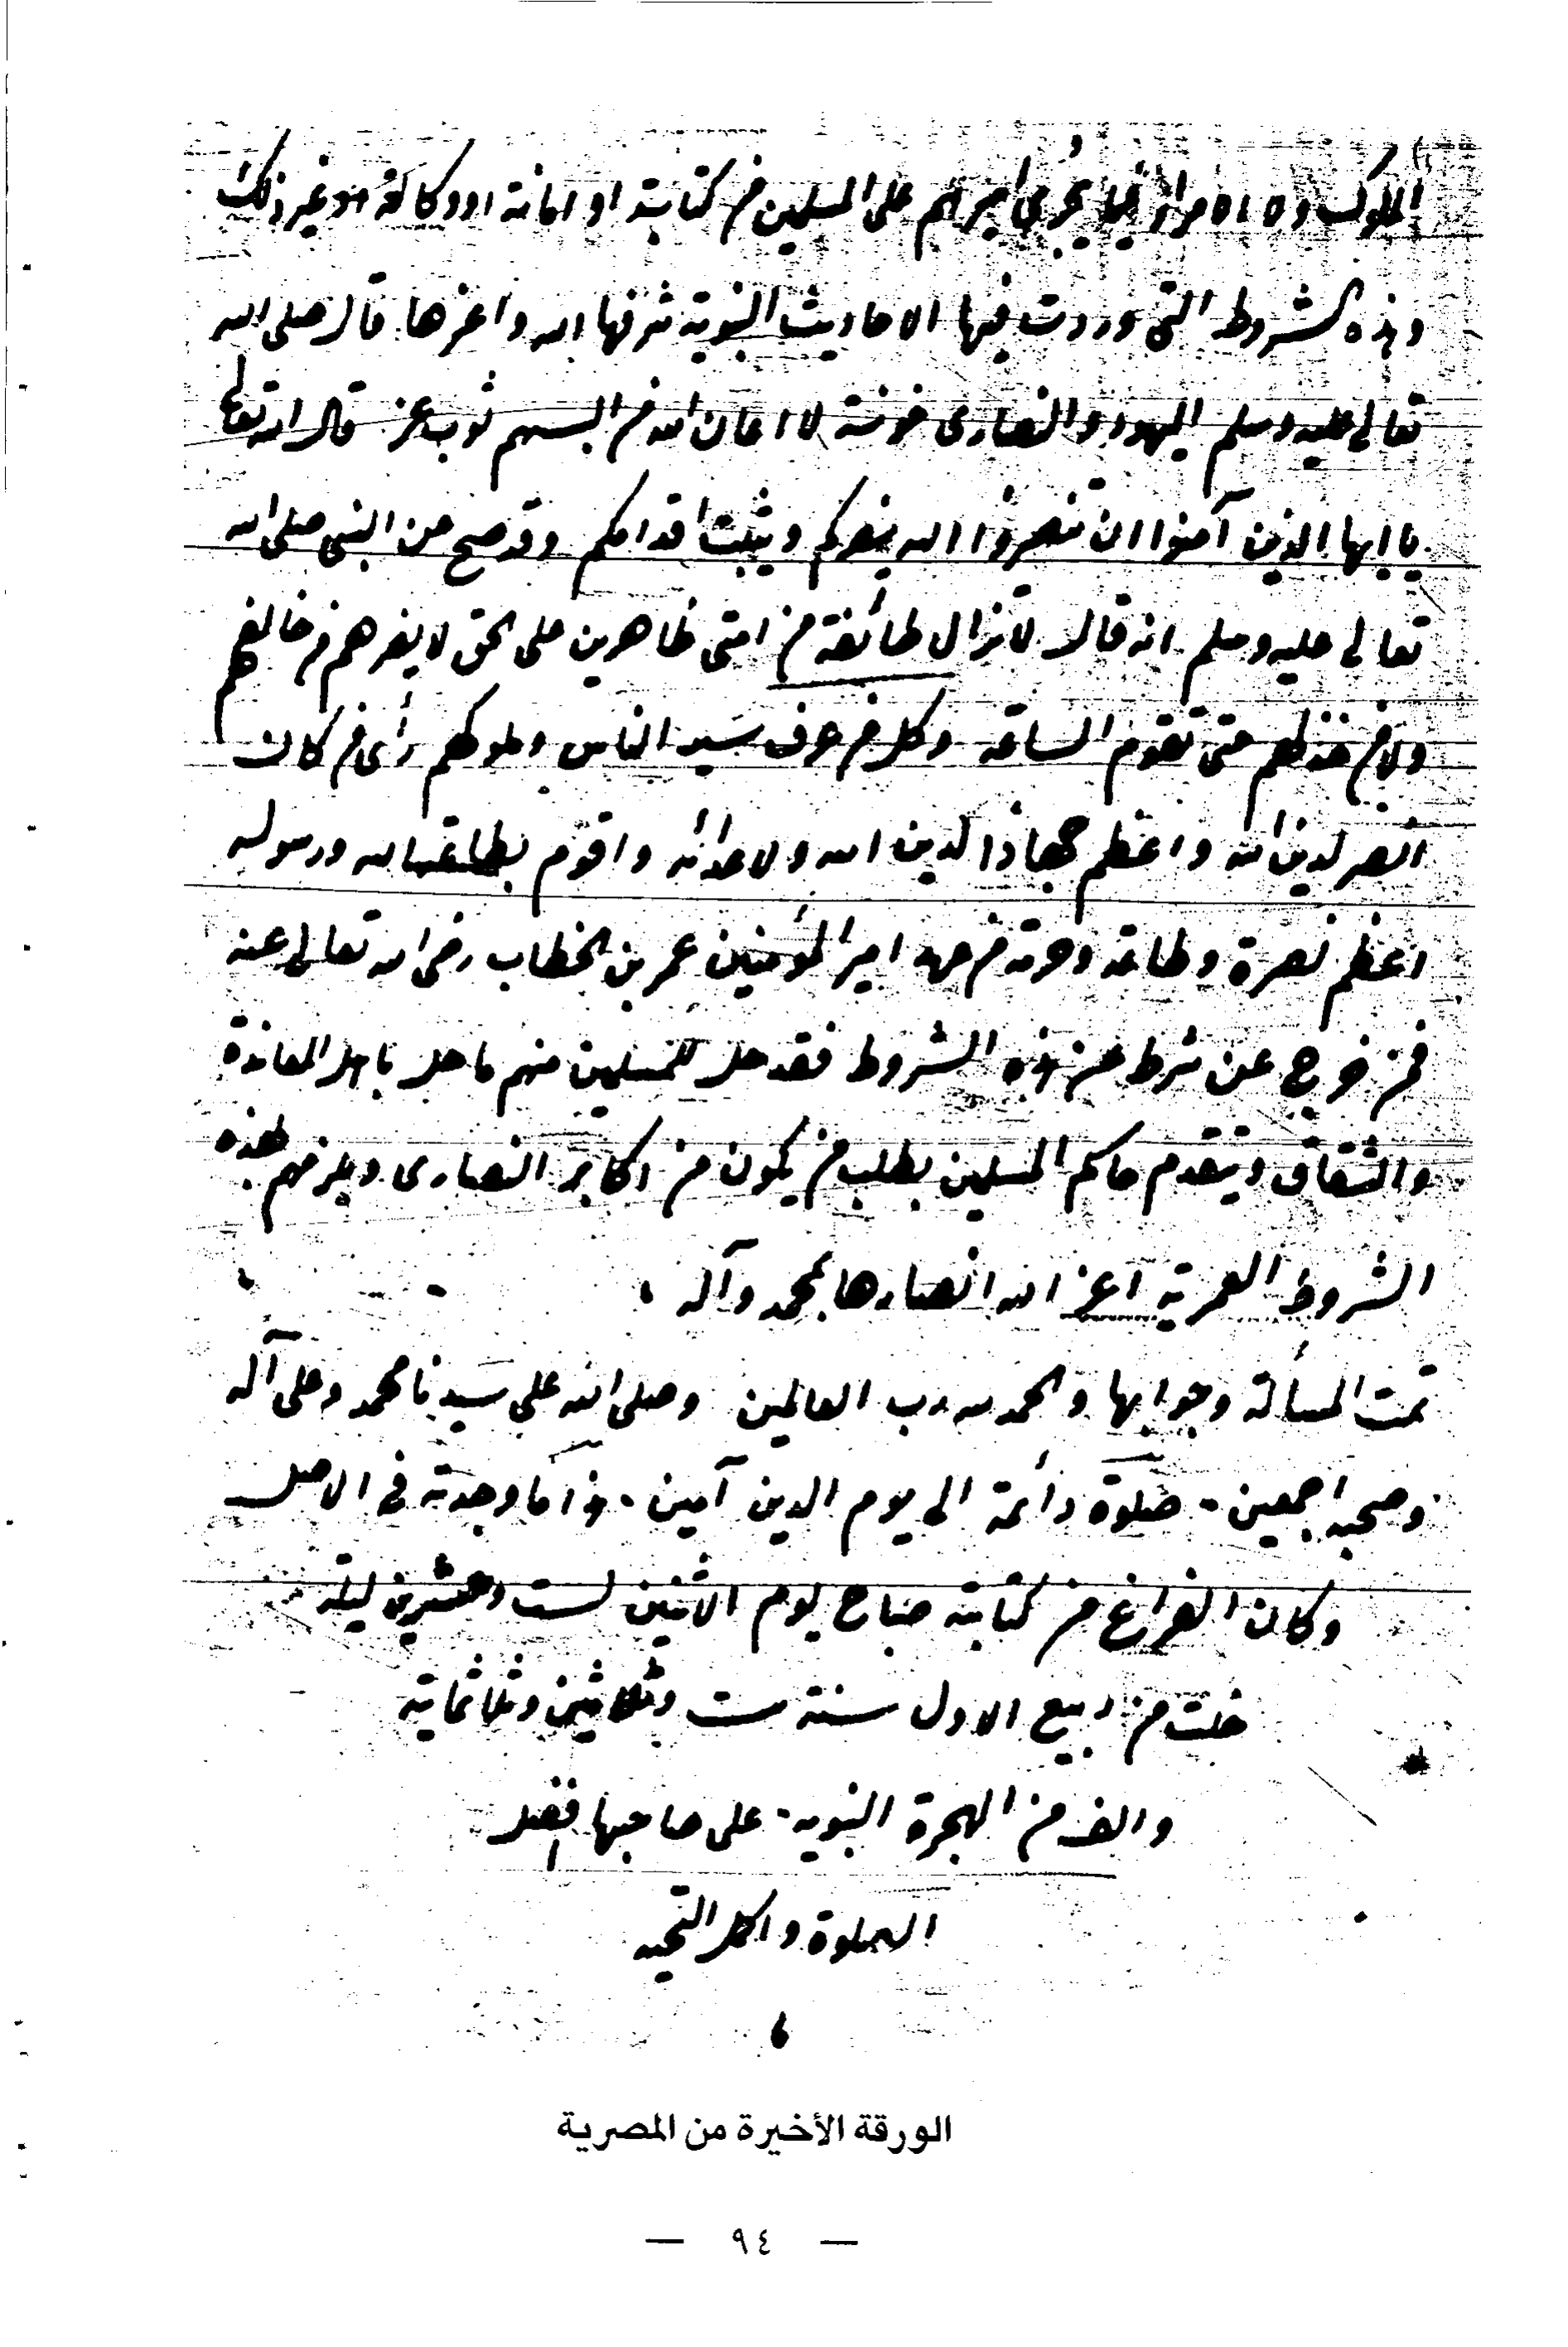 الملوك ولا الامراء فيما يجري امرهم على المسلمين من كتابة او امانة او وكالة او غير ذلك
وهذه الشروط التى وردت فيها الاحاديث النبوية شرفها الله واعزها قال صلى الله
تعالى عليه وسلم اليهود والنصارى خونة لا اعان الله من البسهم ثوب عز قال الله تعالى
يا ايها الذين آمنوا ان تنصروا الله ينصركم ويثبت اقدامكم وقد صح عن النبى صلى الله
تعالى عليه وسلم انه قال لا تزال طائفة من امتى ظاهرين على الحق لا يضرهم من خالفهم
ولا من خذلهم حتى تقوم الساعة وكل من عرف سَير الناس وملوكهم رأى من كان
انصر لدين الله واعظم جهادًا لدين الله ولاعدائه واقوم بطاعة الله ورسوله
اعظم نصرة وطاعة وحرمة من عهد امير المؤمنين عمر بن الخطاب رضى الله تعالى عنه
فمن خرج عن شرط من هذه الشروط فقد حل للمسلمين منهم ما حل باهل المعاندة
والشقاق ويتقدم حاكم المسلمين بطلب من يكون من اكابر النصارى ويلزمهم بهذه
الشروط العمرية اعز الله انصارها بمحمد وآله
تمت المسألة وجوابها والحمد لله رب العالمين وصلى الله على سَيدنا محمد وعلى آله
وصحبه اجمعين - صلوة دائمة الى يوم الدين آمين - هذا ما وجدته فى الاصل
وكان الفراغ من كتابته صباح يوم الاثنين لست وعشرين ليلة
خلت من ربيع الاول سنة ست وثلاثين وثلاثماية
والف من الهجرة النبويه - على صاحبها افضل
الصلوة واكمل التحيه
الورقة الأخيرة من المصرية
— ٩٤ —